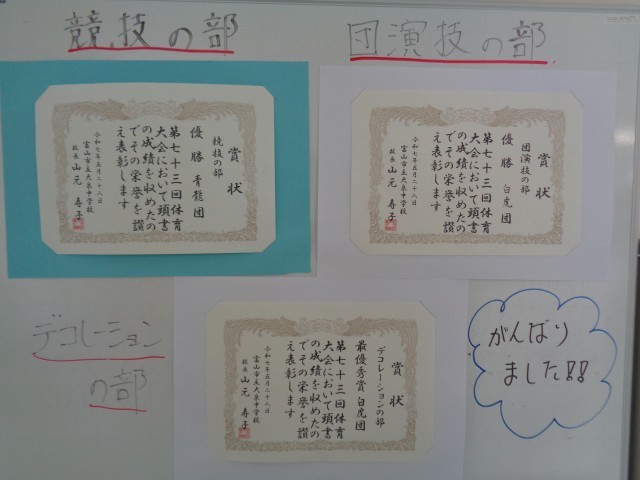 競技の部
団演技の部
賞状
競技の部
優勝 青龍団
第七十三回体育
大会において頭書
の成績を収めたの
でその栄誉を讃
え表彰します
令和七年五月二十八日
富山市立大泉中学校
校長 山元 寿子
賞状
団演技の部
優勝 白虎団
第七十三回体育
大会において頭書
の成績を収めたの
でその栄誉を讃
え表彰します
令和七年五月二十八日
富山市立大泉中学校
校長 山元 寿子
デコレーション
の部
賞状
デコレーションの部
最優秀賞 白虎団
第七十三回体育
大会において頭書
の成績を収めたの
でその栄誉を讃
え表彰します
令和七年五月二十八日
富山市立大泉中学校
校長 山元 寿子
がんばり
ました!!